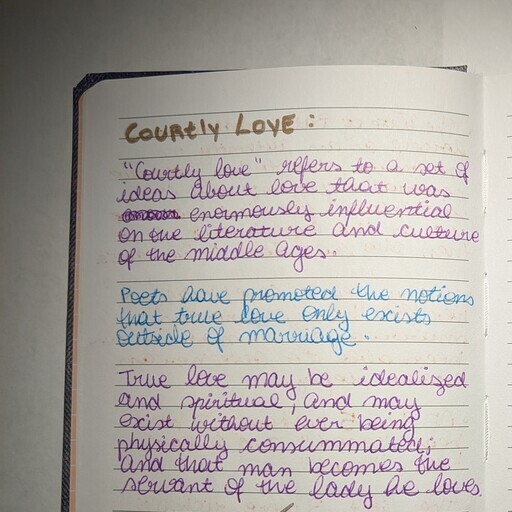 Courtly Love :
"Courtly love" refers to a set of
ideas about love that was
enormously influential
on the literature and culture
of the middle ages.
Poets have promoted the notions
that true love only exists
outside of marriage.
True love may be idealized
and spiritual, and may
exist without ever being
physically consummated;
and that man becomes the
servant of the lady he loves.